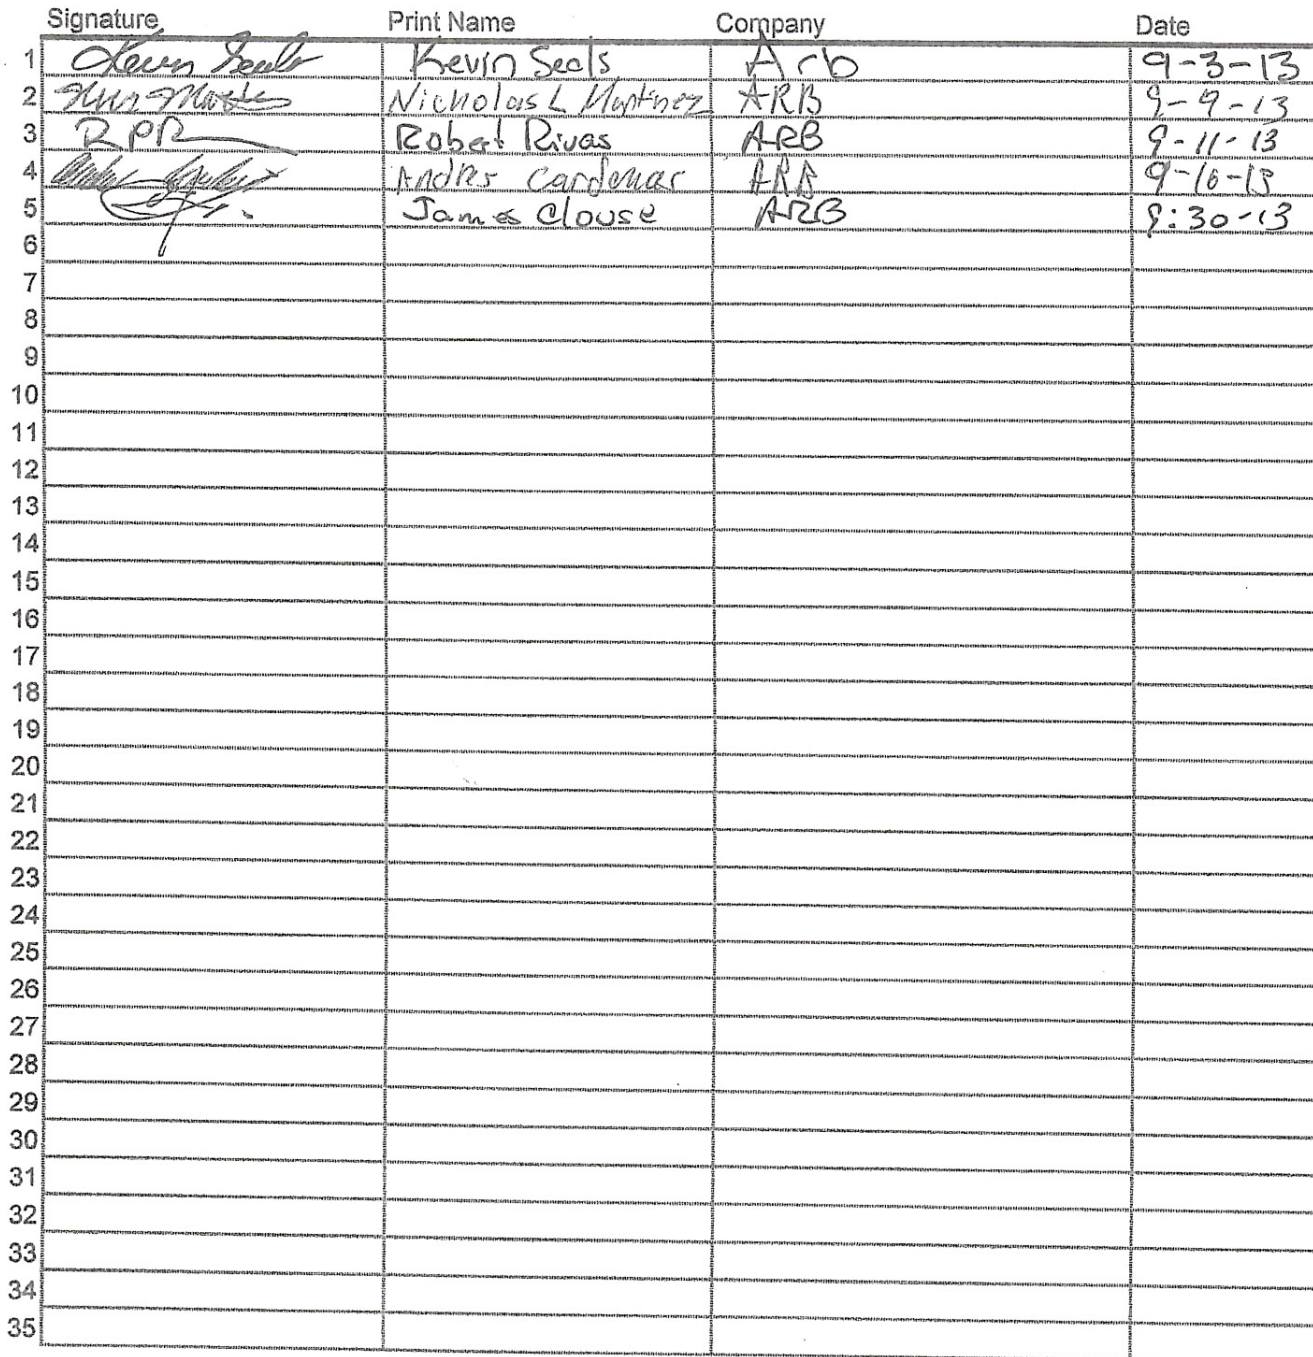 Signature Print Name Company Date
1 Kevin Seals Kevin Seals Arb 9-3-13
2 Nicholas L Martinez ARB 9-9-13
3 RPR Robert Rivas ARB 9-11-13
4 Andres Cardenas ARB 9-16-13
5 James Clouse ARB 9:30-13
6
7
8
9
10
11
12
13
14
15
16
17
18
19
20
21
22
23
24
25
26
27
28
29
30
31
32
33
34
35